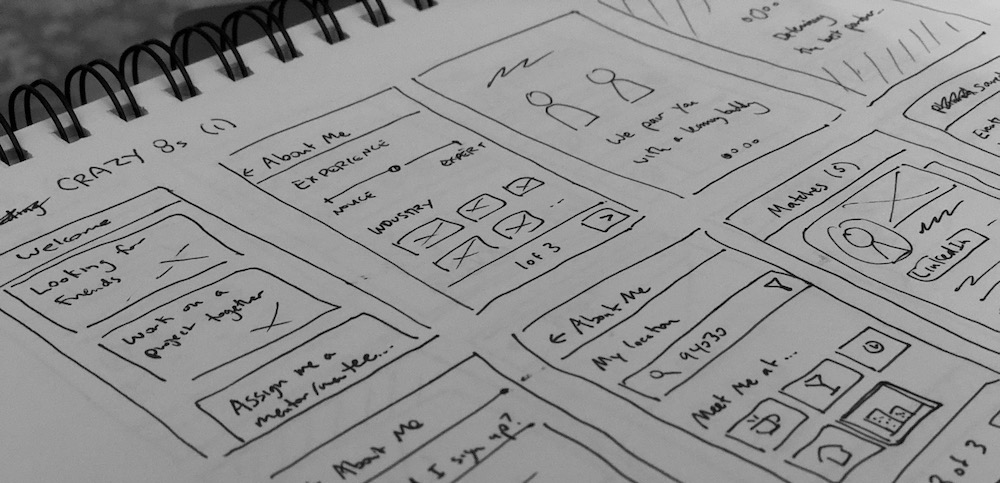 CRAZY 8s (1)
Welcome
Looking for
friends
Work on a
project together
Assign me a
mentor/mentee...
← About Me
EXPERIENCE
NOVICE
EXPERT
INDUSTRY
...
1 of 3
We pair you
with a learning buddy
Determining
the best partner...
← About Me
My location
94030
Meet Me at...
of 3
Matches (5)
LinkedIn
About Me
I sign up?